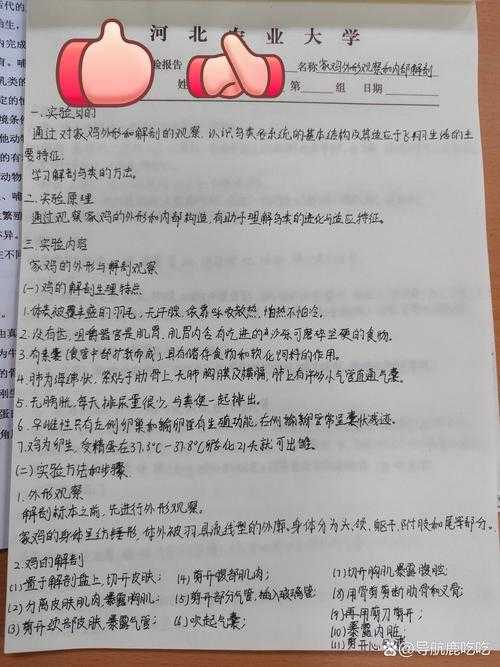 河北农业大学
验报告
名称 家鸡外形观察和内部解剖
第 组 日期
一.实验目的
通过对家鸡外形和解剖的观察,认识鸟类各系统的基本结构及其适应于飞翔生活的主
要特征.
学习解剖鸟类的方法。
二.实验原理
通过观察家鸡的外形和内部构造,有助于理解鸟类的进化与适应特征。
三.实验内容
家鸡的外形与解剖观察
(一)鸡的解剖生理特点
1.体表被覆丰盛的羽毛,无汗腺,依靠呼吸散热,怕热不怕冷。
2.没有齿,咀嚼器官是肌胃,肌胃内含有吃进的砂砾可磨碎坚硬的食物。
3.有嗉囊(食管中部扩张而成),具有储存食物和软化饲料的作用。
4.肺为海绵状,紧贴于肋骨上,无肺胸膜及横膈,肺上有许多小气管直通气囊。
5.无膀胱,每天排尿量很少,与粪便一起排出。
6.孕雌性只有左侧卵巢和输卵管有生殖功能,右侧输卵管常呈囊状残迹。
7.鸡为卵生,受精蛋在37.3℃-37.8℃孵化21天就可出雏。
(二)实验方法和步骤
1.外形观察
解剖标本之前,先进行外形观察。
家鸡的身体呈纺锤形,体外被羽,具流线型的外廓。身体分为头、颈、躯干、附肢和尾等部分。
2.鸡的解剖
(1)置于解剖盘上,切开皮肤; (4)剪开腹部肌肉; (7)切开胸肌暴露腹腔;
(2)分离皮肤肌肉,暴露胸肌; (5)剪开部分气管,插入玻璃管; (8)用骨剪剪断肋骨和叉骨;
(3)剪开颈部皮肤,暴露气管; (6)吹起气囊; (9)再用剪刀剪开;
(10)暴露内脏;
(11)剪开心
@导航鹿吃吃